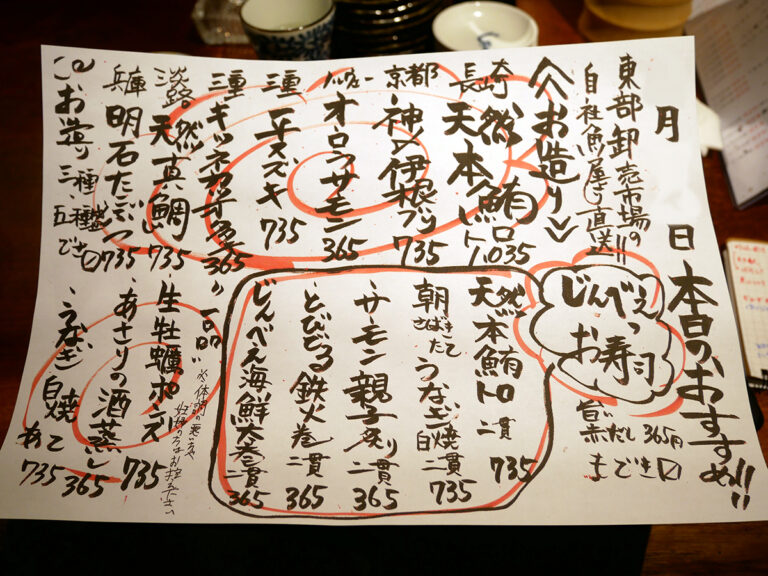 月 日 本日のおすすめ!!
東部卸売市場の
自社魚屋さん直送!!
<お造り>
長崎 天然本鮪トロ 1035
京都 神〆伊根ブリ 735
ノルウェー オーロラサーモン 365
三重 平スズキ 735
三重 365
淡路 天然真鯛 735
兵庫 明石たこぶつ 735
お造り三種、五種盛できます
じんべえっ
お寿司
旨い
赤だし 365円
もできます
天然本鮪トロ 二貫 735
朝さばきたて うなぎ白焼 二貫 735
サーモン親子 二貫 365
とびとろ鉄火巻 二貫 365
じんべえ海鮮太巻 二貫 365
一品
生牡蠣ポンズ 735
※体調の悪い方や
妊婦の方はお控え下さい
あさりの酒蒸し 365
うなぎ白焼き 735